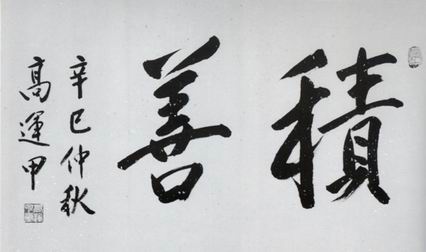 積善
辛巳仲秋
高運甲